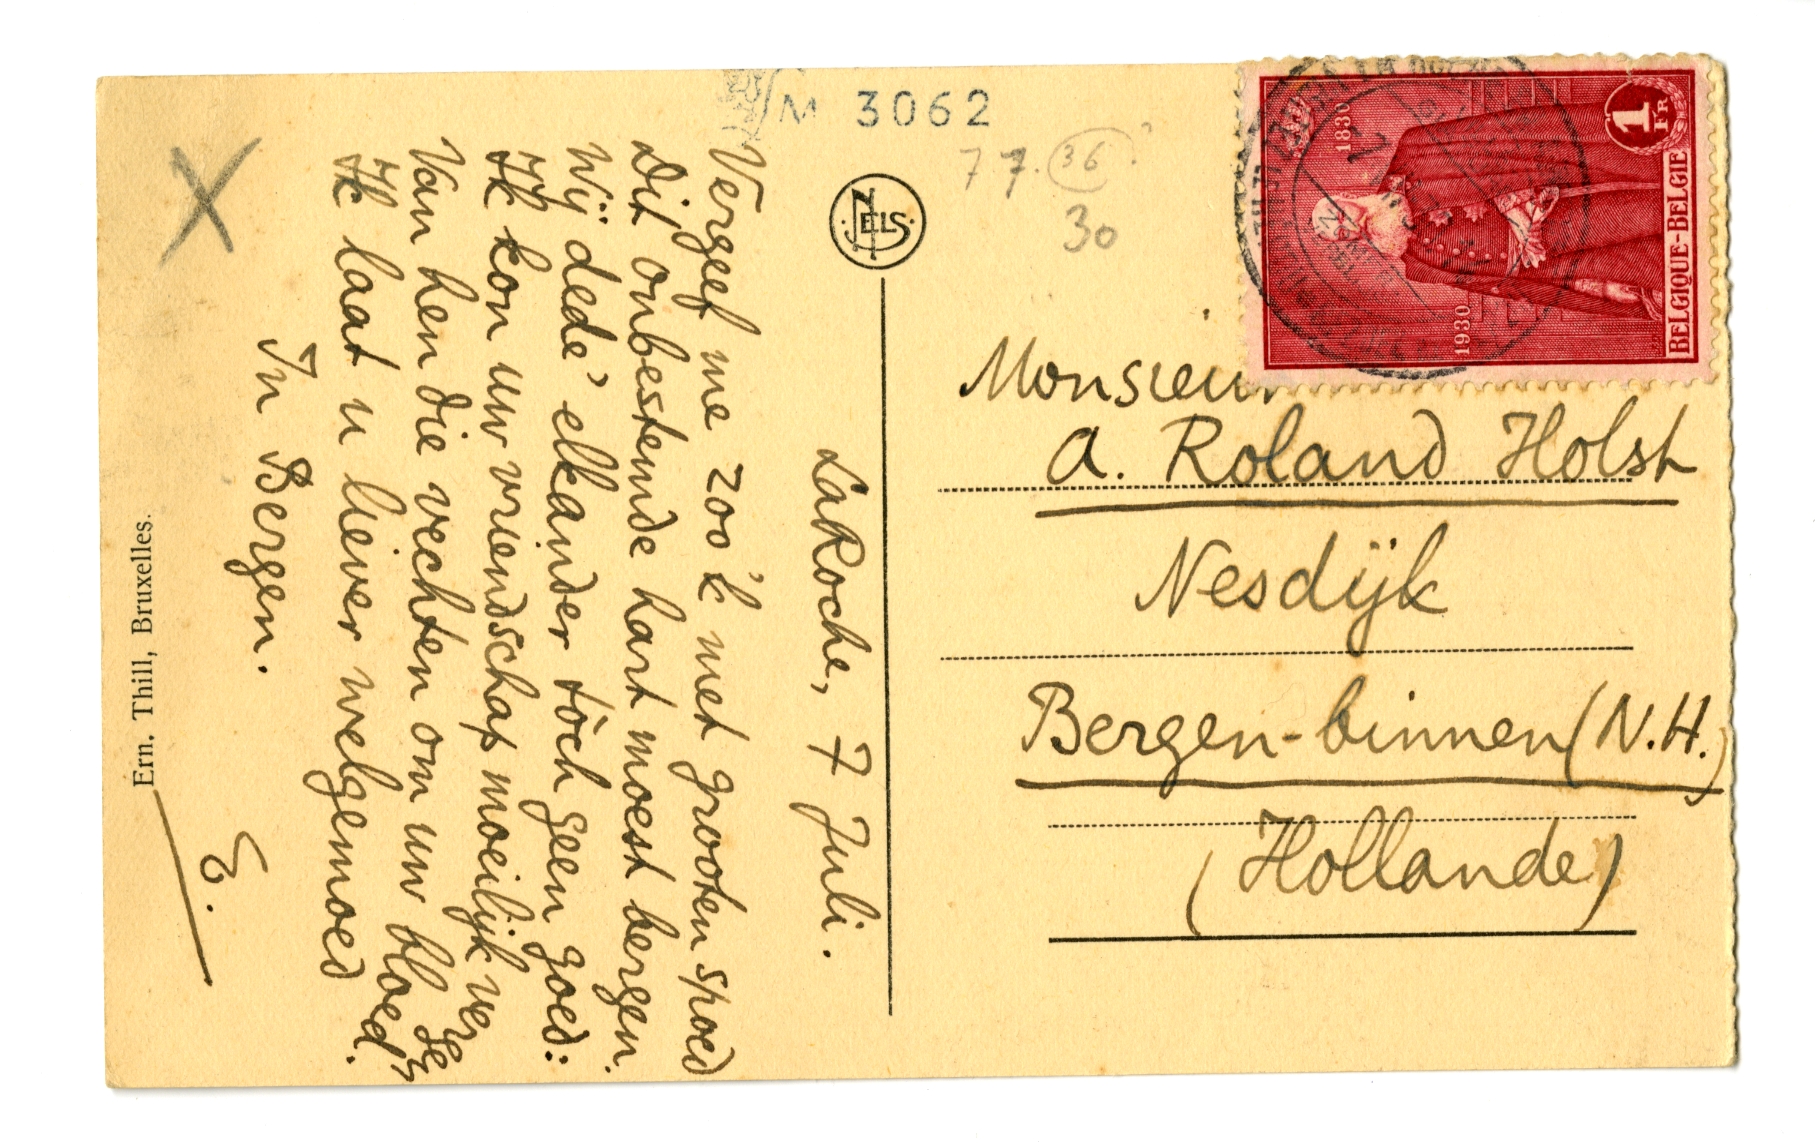 M 3062
77. 36?
30
NELS
1 FR
1830
1930
BELGIQUE-BELGIE
Monsieur
A. Roland Holst
Nesdijk
Bergen-binnen (N.H.)
(Hollande)
La Roche, 7 Juli.
Vergeef me zoo 'k met grooten spoed
Dit onbestemde hart moest bergen.
Wij dede' elkander tòch geen goed:
Ik kon uw vriendschap moeilijk ver
gen
Van hen die vechten om uw bloed.
Ik laat u liever welgemoed
In Bergen.
E.
Ern. Thill, Bruxelles.